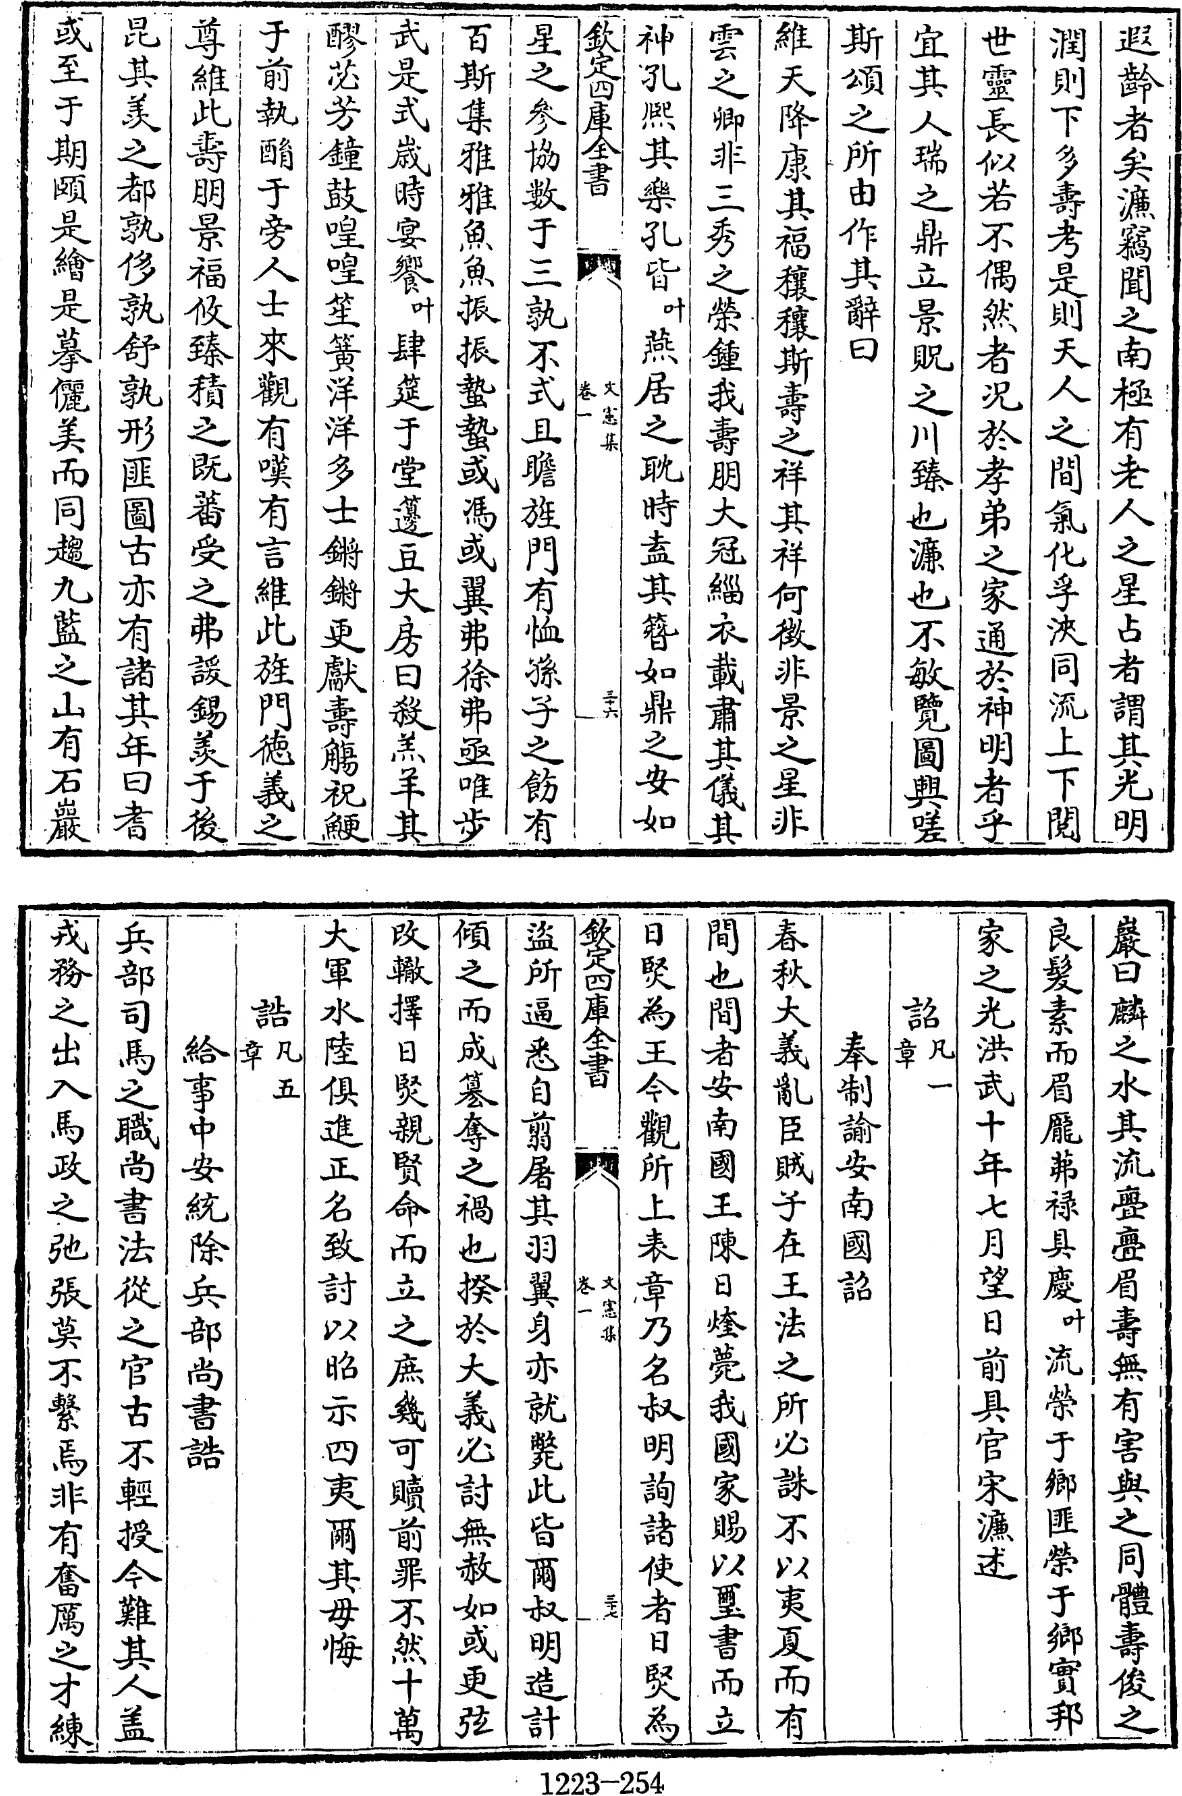 遐齡者矣濂竊聞之南極有老人之星占者謂其光明
潤則下多壽考是則天人之間氣化孚泱同流上下閱
世靈長似若不偶然者况於孝弟之家通於神明者乎
宜其人瑞之鼎立景貺之川臻也濂也不敏覽圖興嗟
斯頌之所由作其辭曰
維天降康其福穰穰斯壽之祥其祥何徵非景之星非
雲之卿非三秀之榮鍾我壽朋大冠緇衣載肅其儀其
神孔熈其樂孔皆叶燕居之耽時盍其簪如鼎之安如
欽定四庫全書
文憲集
卷一
三十六
星之參協數于三孰不式且瞻旌門有恤孫子之飭有
百斯集雅雅魚魚振振蟄蟄或馮或翼弗徐弗亟唯步
武是式歳時宴饗叶肆筵于堂籩豆大房曰殺羔羊其
醪苾芳鐘鼓喤喤笙簧洋洋多士鏘鏘更獻壽觴祝鯁
于前執酳于旁人士來觀有嘆有言維此旌門德義之
尊維此壽朋景福攸臻積之既蕃受之弗諼錫羨于後
昆其羨之都孰侈孰舒孰形匪圖古亦有諸其年曰耆
或至于期頤是繪是摹儷美而同趨九藍之山有石巖
巖曰麟之水其流亹亹眉壽無有害與之同體壽俊之
良髮素而眉厖茀禄具慶叶流榮于鄉匪榮于鄉實邦
家之光洪武十年七月望日前具官宋濂述
詔凡一章
奉制諭安南國詔
春秋大義亂臣賊子在王法之所必誅不以夷夏而有
間也間者安南國王陳日煃薨我國家賜以璽書而立
日熞為王今觀所上表章乃名叔明詢諸使者日熞為
欽定四庫全書
文憲集
卷一
三十七
盜所逼悉自翦屠其羽翼身亦就斃此皆爾叔明造計
傾之而成簒奪之禍也揆於大義必討無赦如或更弦
改轍擇日熞親賢命而立之庶幾可贖前罪不然十萬
大軍水陸俱進正名致討以昭示四夷爾其毋悔
誥凡五章
給事中安統除兵部尚書誥
兵部司馬之職尚書法從之官古不輕授今難其人盖
戎務之出入馬政之弛張莫不繫焉非有奮厲之才練
1223-254